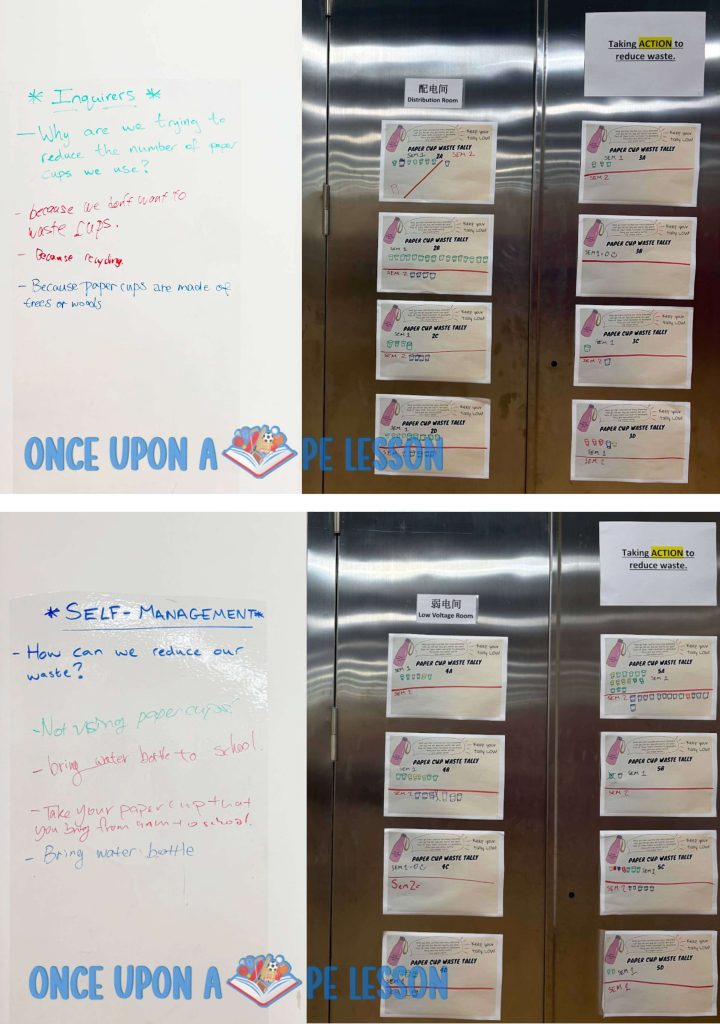 * Inquirers *
- Why are we trying to
reduce the number of paper
cups we use?
- because we don't want to
waste cups.
- Because recycling.
- Because paper cups are made of
trees or woods
配电间
Distribution Room
Taking ACTION to
reduce waste.
Keep your
tally LOW!
PAPER CUP WASTE TALLY
SEM 1 2A SEM 2
Keep your
tally LOW!
PAPER CUP WASTE TALLY
3A
SEM 1
SEM 2
Keep your
tally LOW!
PAPER CUP WASTE TALLY
2B
SEM 1
SEM 2
Keep your
tally LOW!
PAPER CUP WASTE TALLY
3B
SEM 1 - 0
Keep your
tally LOW!
PAPER CUP WASTE TALLY
2C
SEM 1
SEM 2
Keep your
tally LOW!
PAPER CUP WASTE TALLY
3C
SEM 1
SEM 2
Keep your
tally LOW!
PAPER CUP WASTE TALLY
2D
SEM 1
SEM 2
Keep your
tally LOW!
PAPER CUP WASTE TALLY
3D
SEM 1
SEM 2
ONCE UPON A PE LESSON
* SELF-MANAGEMENT *
- How can we reduce our
waste?
- Not using paper cups.
- bring water bottle to school.
- Take your paper cup that
you bring from to school.
- Bring water bottle
弱电间
Low Voltage Room
Taking ACTION to
reduce waste.
Keep your
tally LOW!
PAPER CUP WASTE TALLY
4A
SEM 1
SEM 2
Keep your
tally LOW!
PAPER CUP WASTE TALLY
5A
SEM 1
SEM 2
Keep your
tally LOW!
PAPER CUP WASTE TALLY
4B
SEM 1
SEM 2
Keep your
tally LOW!
PAPER CUP WASTE TALLY
5B
SEM 1
SEM 2
Keep your
tally LOW!
PAPER CUP WASTE TALLY
4C
SEM 1 - 0
Sem 2:
Keep your
tally LOW!
PAPER CUP WASTE TALLY
5C
SEM 1
SEM 2
Keep your
tally LOW!
PAPER CUP WASTE TALLY
4D
Keep your
tally LOW!
PAPER CUP WASTE TALLY
5D
SEM 1
SEM 1
ONCE UPON A PE LESSON